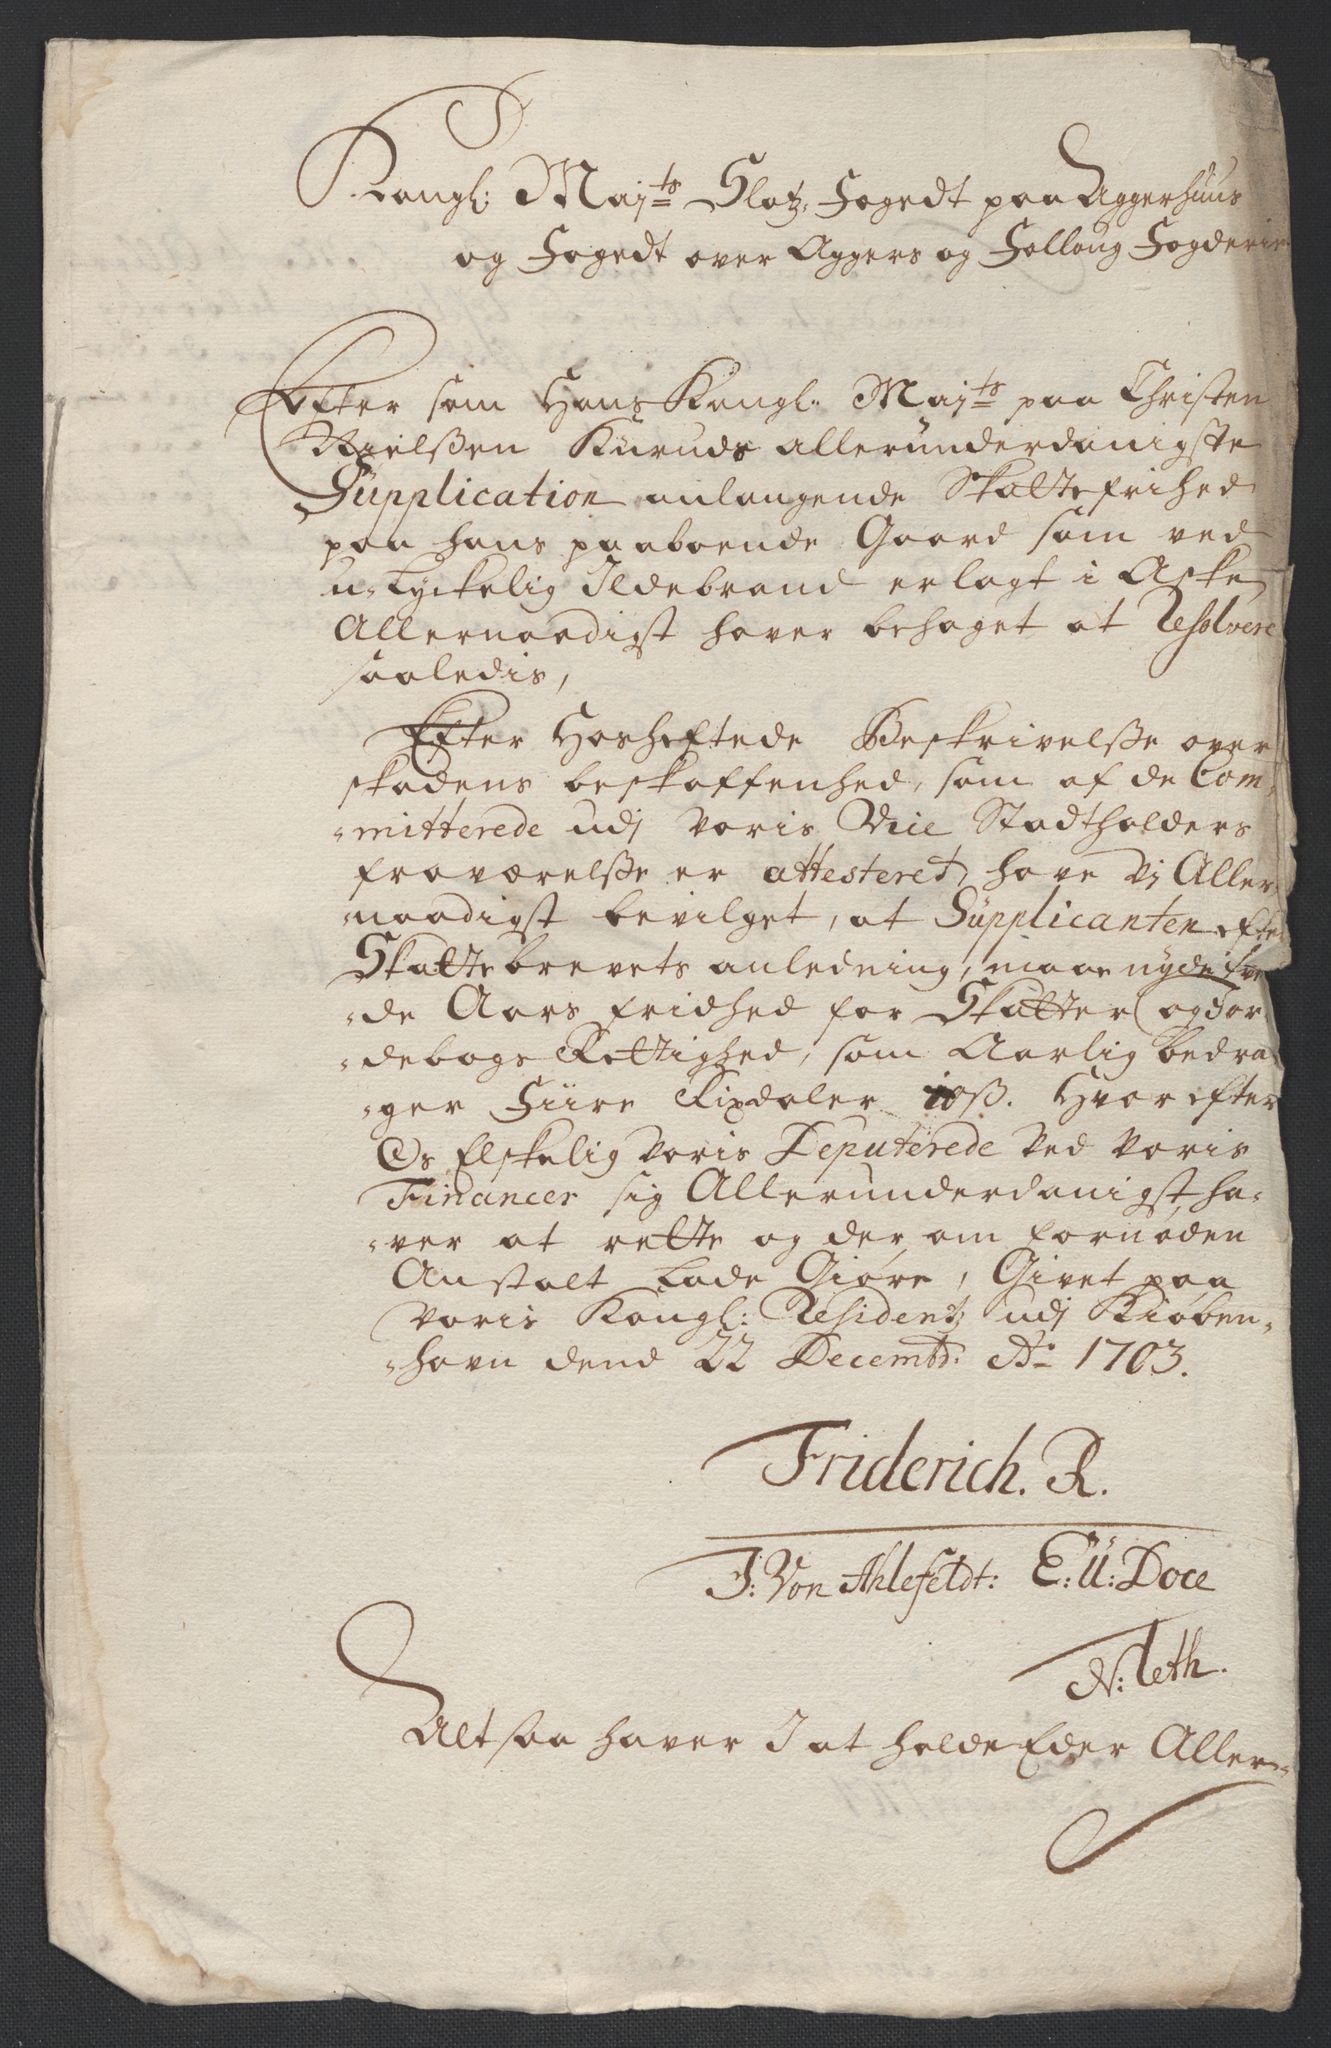 Kongl: Maj:ts Slotz, Fogedt paa Aggerhuus
og Fogedt over Aggers og Folloug Fogderie
Efter som Hans Kongl: Maj:ts paa Christen
Nielßen Kuruds allerunderdanigste
Supplication anlangende Skattefrihed
paa hans paaboende Gaard som ved
u-lyckelig Ildebrand er lagt i Aske,
Allernaadigst haver behaget at Resolvere
saaledis,
Efter Hosheftede Beskrivelße over
skadens beskaffenhed, som af de Com-
-mitterede udj Voris Vice Stadtholders
fraværelße er attesteret, have Vj Aller-
-naadigst bevilget, at Supplicanten efter
Skatte brevets anledning, maae nyde
-de Aars fridhed for Skatter og Jor-
-debogs Rettighed, som Aarlig bedra-
-ger Fiire Rixdaler 10ß. Hvor efter
Os Elskelig Voris Deputerede Ved Voris
Financer sig Allerunderdanigst ha-
-ver at rette og der, om fornøden
Anstalt Lade Giøre, Givet paa
Voris Kongl: Residentz udj Kiøben-
-havn dend 22 Decembr: Ao 1703.
Friderich. R.
J: Von Ahlefeldt: E: U: Doce
N: Leth.
Alt saa haver I at holde Eder Aller-